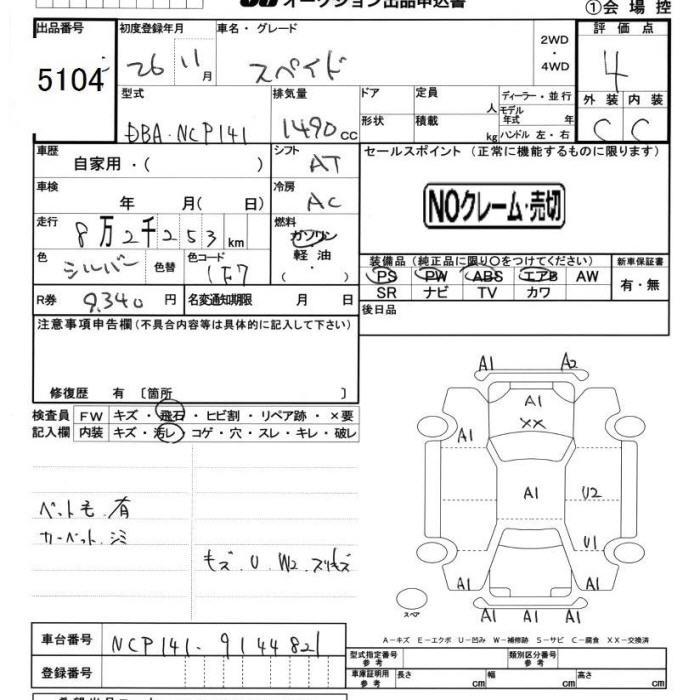 オークション出品申込書
①会 場 控
出品番号 初度登録年月 車名・グレード 2WD ・ 4WD 評 価 点
5104 26 11月 スペイド 4
型式 排気量 ドア 定員 人 ディーラー・並 行 外 装 内 装
DBA-NCP141 1490cc 形状 積載 kg モデル年式 年 ハンドル 左・右 C C
車歴 自家用・( ) シフト AT セールスポイント (正常に機能するものに限ります)
車検 年 月( 日) 冷房 AC
NOクレーム・売切
走行 8万2千253km 燃料 ガソリン 軽 油 ・ ( )
色 シルバー 色替 色コード 1F7
装備品 (純正品に限り〇をつけてください) 新車保証書
PS PW ABS エアB AW 有・無
SR ナビ TV カワ
R券 9,340円 名変通知期限 月 日
後日品
注意事項申告欄(不具合内容等は具体的に記入して下さい)
修復歴 有 〔箇所 〕
検査員 FW キズ・飛石・ヒビ割・リペア跡・×要
記入欄 内装 キズ・汚レ・コゲ・穴・スレ・キレ・破レ
A1 A2
A1
XX
A1
A1 U2
U1
A1 A1
A1 A1 A1
スペア
ペット毛 有
カーペット シミ
キズ・U・W2・スリキズ
A−キズ E−エクボ U−凹み W−補修跡 S−サビ C−腐食 XX−交換済
車台番号 NCP141-9144821
型式指定番号 参 考 類別区分番号 参 考
登録番号
車庫証明用 参 考 長さ cm 幅 cm 高さ cm